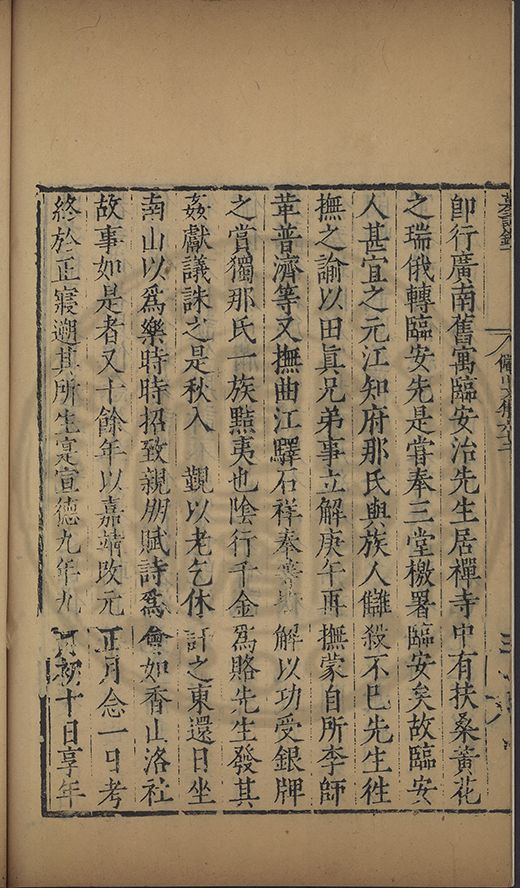 即行廣南舊寓臨安治先生居禪寺中有扶桑黃花
之瑞俄轉臨安先是嘗奉三堂檄署臨安矣故臨安
人甚宜之元江知府那氏與族人讎殺不已先生徃
撫之諭以田眞兄弟事立解庚午再撫蒙自所李師
革普濟等又撫曲江驛石祥奉 解以功受銀牌
之賞獨那氏一族黠夷也陰行千金爲賂先生發其
姦獻議誅之是秋入 覲以老乞休 許之東還日坐
南山以爲樂時時招致親朋賦詩爲會如香山洛社
故事如是者又十餘年以嘉靖改元正月念一日考
終於正寢遡其所生寔宣德九年九月初十日享年